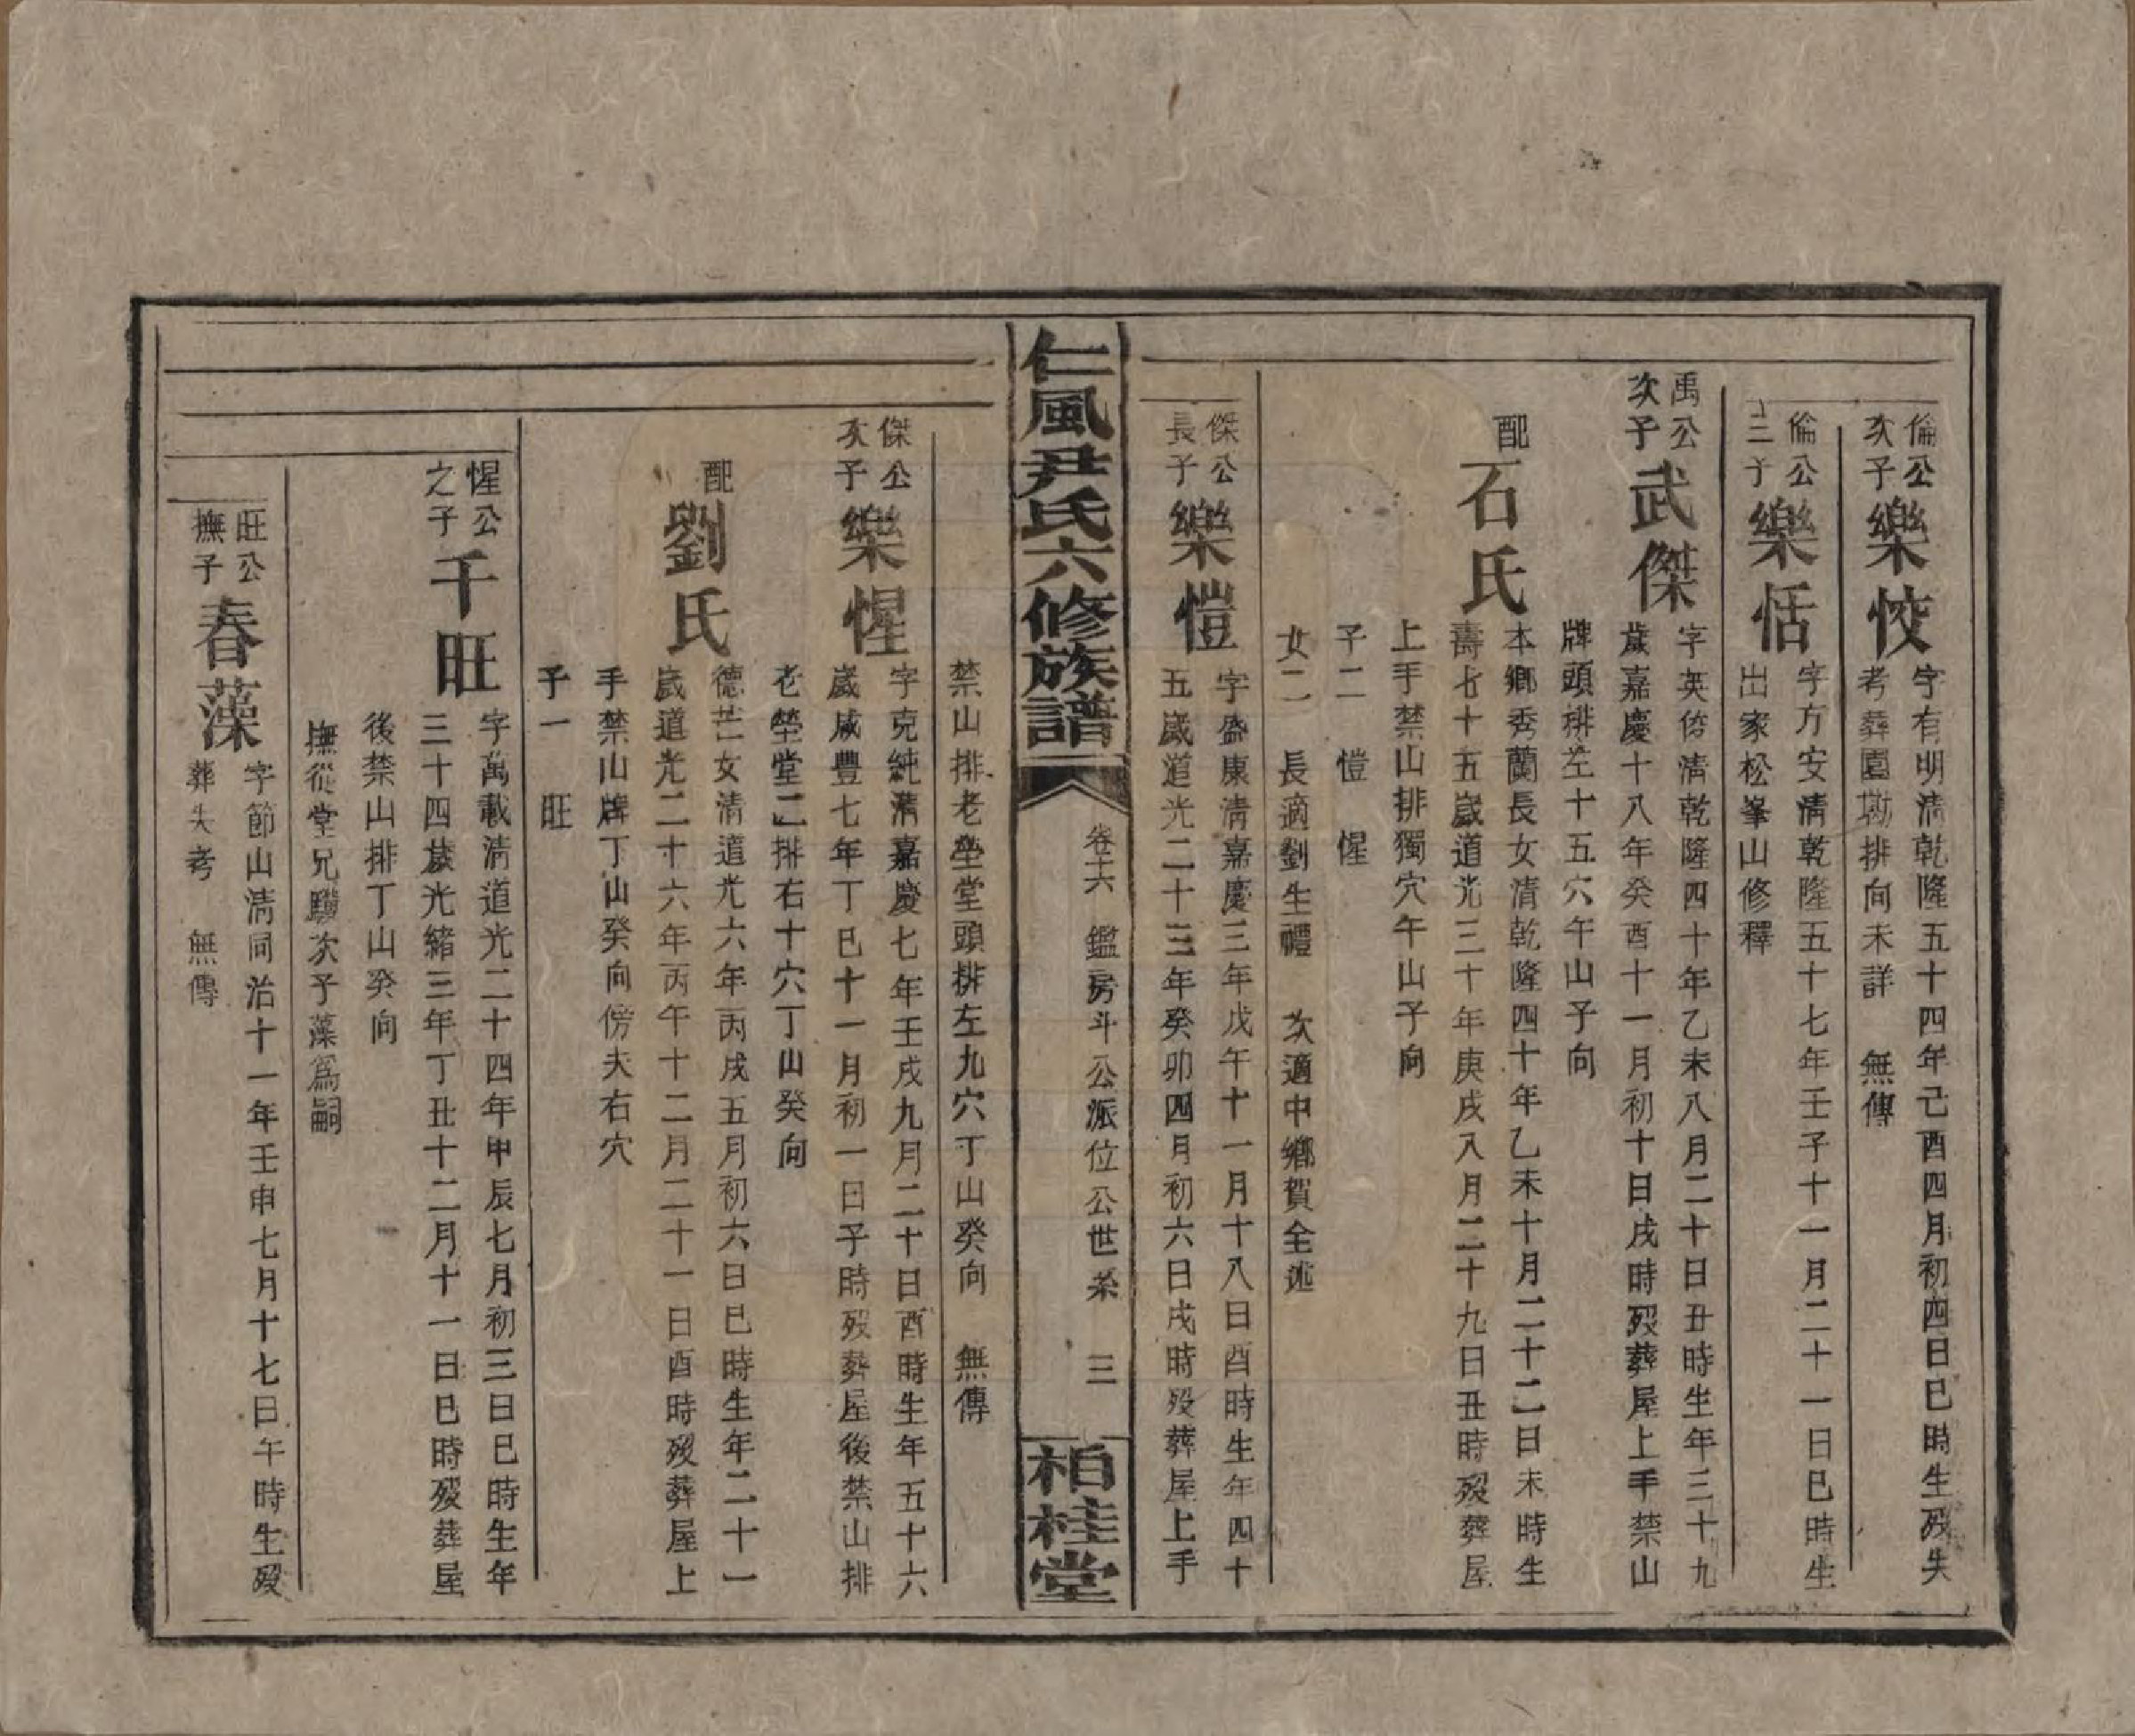 倫公次子樂恔
字有明清乾隆五十四年己酉四月初四日巳時生歿失
考葬園塝排向未詳　無傳
倫公三子樂恬
字方安清乾隆五十七年壬子十一月二十一日巳時生
出家松峯山修釋
禹公次子武傑
字英俗清乾隆四十年乙未八月二十日丑時生年三十九
歲嘉慶十八年癸酉十一月初十日戌時歿葬屋上手禁山
牌頭排左十五穴午山子向
配石氏
本鄉秀蘭長女清乾隆四十年乙未十月二十二日未時生
壽七十五歲道光三十年庚戌八月二十九日丑時歿葬屋
上手禁山排獨穴午山子向
子二　愷　惺
女二　長適劉生禮　次適中鄉賀全述
傑公長子樂愷
字盛康清嘉慶三年戊午十一月十八日酉時生年四十
五歲道光二十三年癸卯四月初六日戌時歿葬屋上手
仁風尹氏六修族譜
卷十六　鑑房斗公派位公世系　三
柏桂堂
禁山排老塋堂頭排左九穴丁山癸向　無傳
傑公次子樂惺
字克純清嘉慶七年壬戌九月二十日酉時生年五十六
歲咸豐七年丁巳十一月初一日子時歿葬屋後禁山排
老塋堂二排右十穴丁山癸向
配劉氏
德芒女清道光六年丙戌五月初六日巳時生年二十一
歲道光二十六年丙午十二月二十一日酉時歿葬屋上
手禁山牌丁山癸向傍夫右穴
子一　旺
惺公之子千旺
字萬載清道光二十四年甲辰七月初三日巳時生年
三十四歲光緒三年丁丑十二月十一日巳時歿葬屋
後禁山排丁山癸向
撫從堂兄驥次子藻為嗣
旺公撫子春藻
字節山清同治十一年壬申七月十七日午時生歿
葬失考　無傳